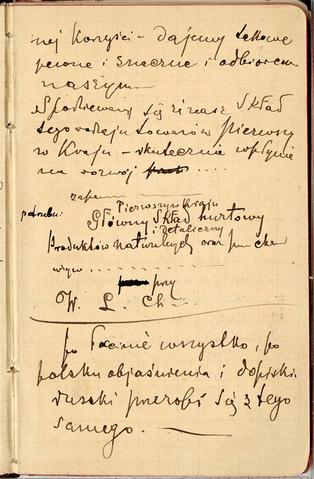 nej korzyści – dajemy
pewne i znaczne i odbiorcom
naszym
Spodziewamy się iż nasz Skład
tego rodzaju towarów Pierwszy
w Kraju – skutecznie wpłynie
na rozwój ....
Pierwszy w Kraju
potrzebu:
Główny Skład hurtowy
i Detaliczny
Produktów naturalnych oraz
przy
W. L. Ch
po łacinie wszystko, po
polsku objaśnienia i dopiski
ruski przerobi się z tego
samego. –